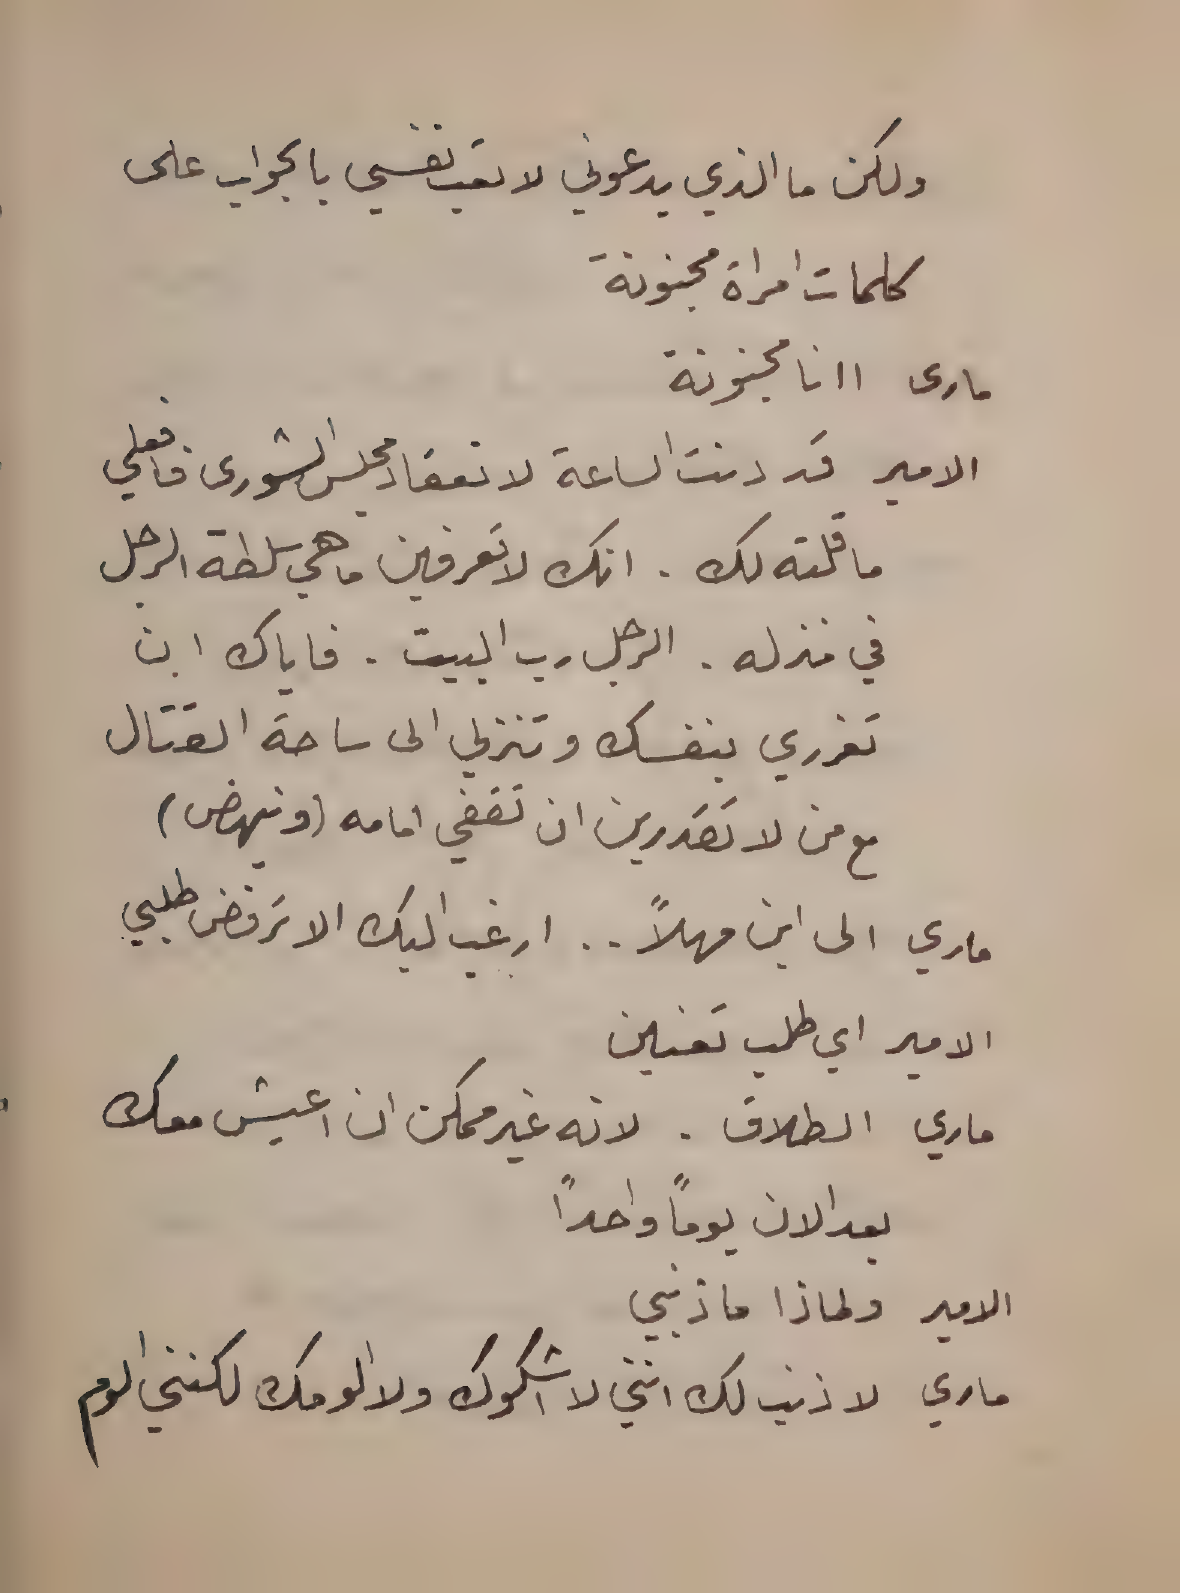 ولكن ما الذي يدعوني لاتعب نفسي بالجواب على
كلمات امراة مجنونة
مارى اانا مجنونة
الامير قد دنت الساعة لانعقاد مجلس الشورى فافعلي
ما قلته لك . انك لا تعرفين ما هي سلطة الرجل
في منزله . الرجل رب البيت . فاياك ان
تغرري بنفسك وتنزلي الى ساحة القتال
مع من لا تقدرين ان تقفي امامه (وينهض)
ماري الى اين مهلاً ... ارغب اليك الا ترفض طلبي
الامير اي طلب تعنين
ماري الطلاق . لانه غير ممكن ان اعيش معك
بعد الان يوماً واحداً
الامير ولماذا ما ذنبي
ماري لا ذنب لك انني لا اشكوك ولا الومك لكنني الوم